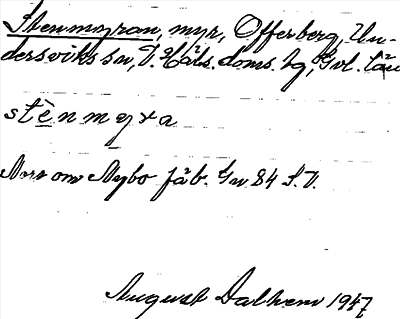 Stenmyran, myr, Offerberg, Un-
dersviks sn, V. Häls. doms. hg, Gvl. län
stènmyra
Norr om Nybo fäb. Gv 84 S.V.
August Dalhem 1947